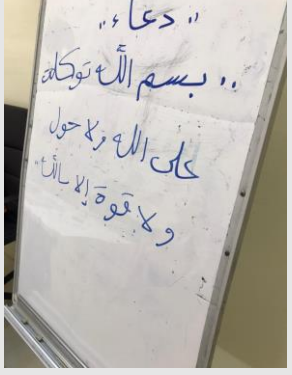 "دعاء"
.. بسم الله توكلت
على الله ولا حول
ولا قوة إلا بالله"